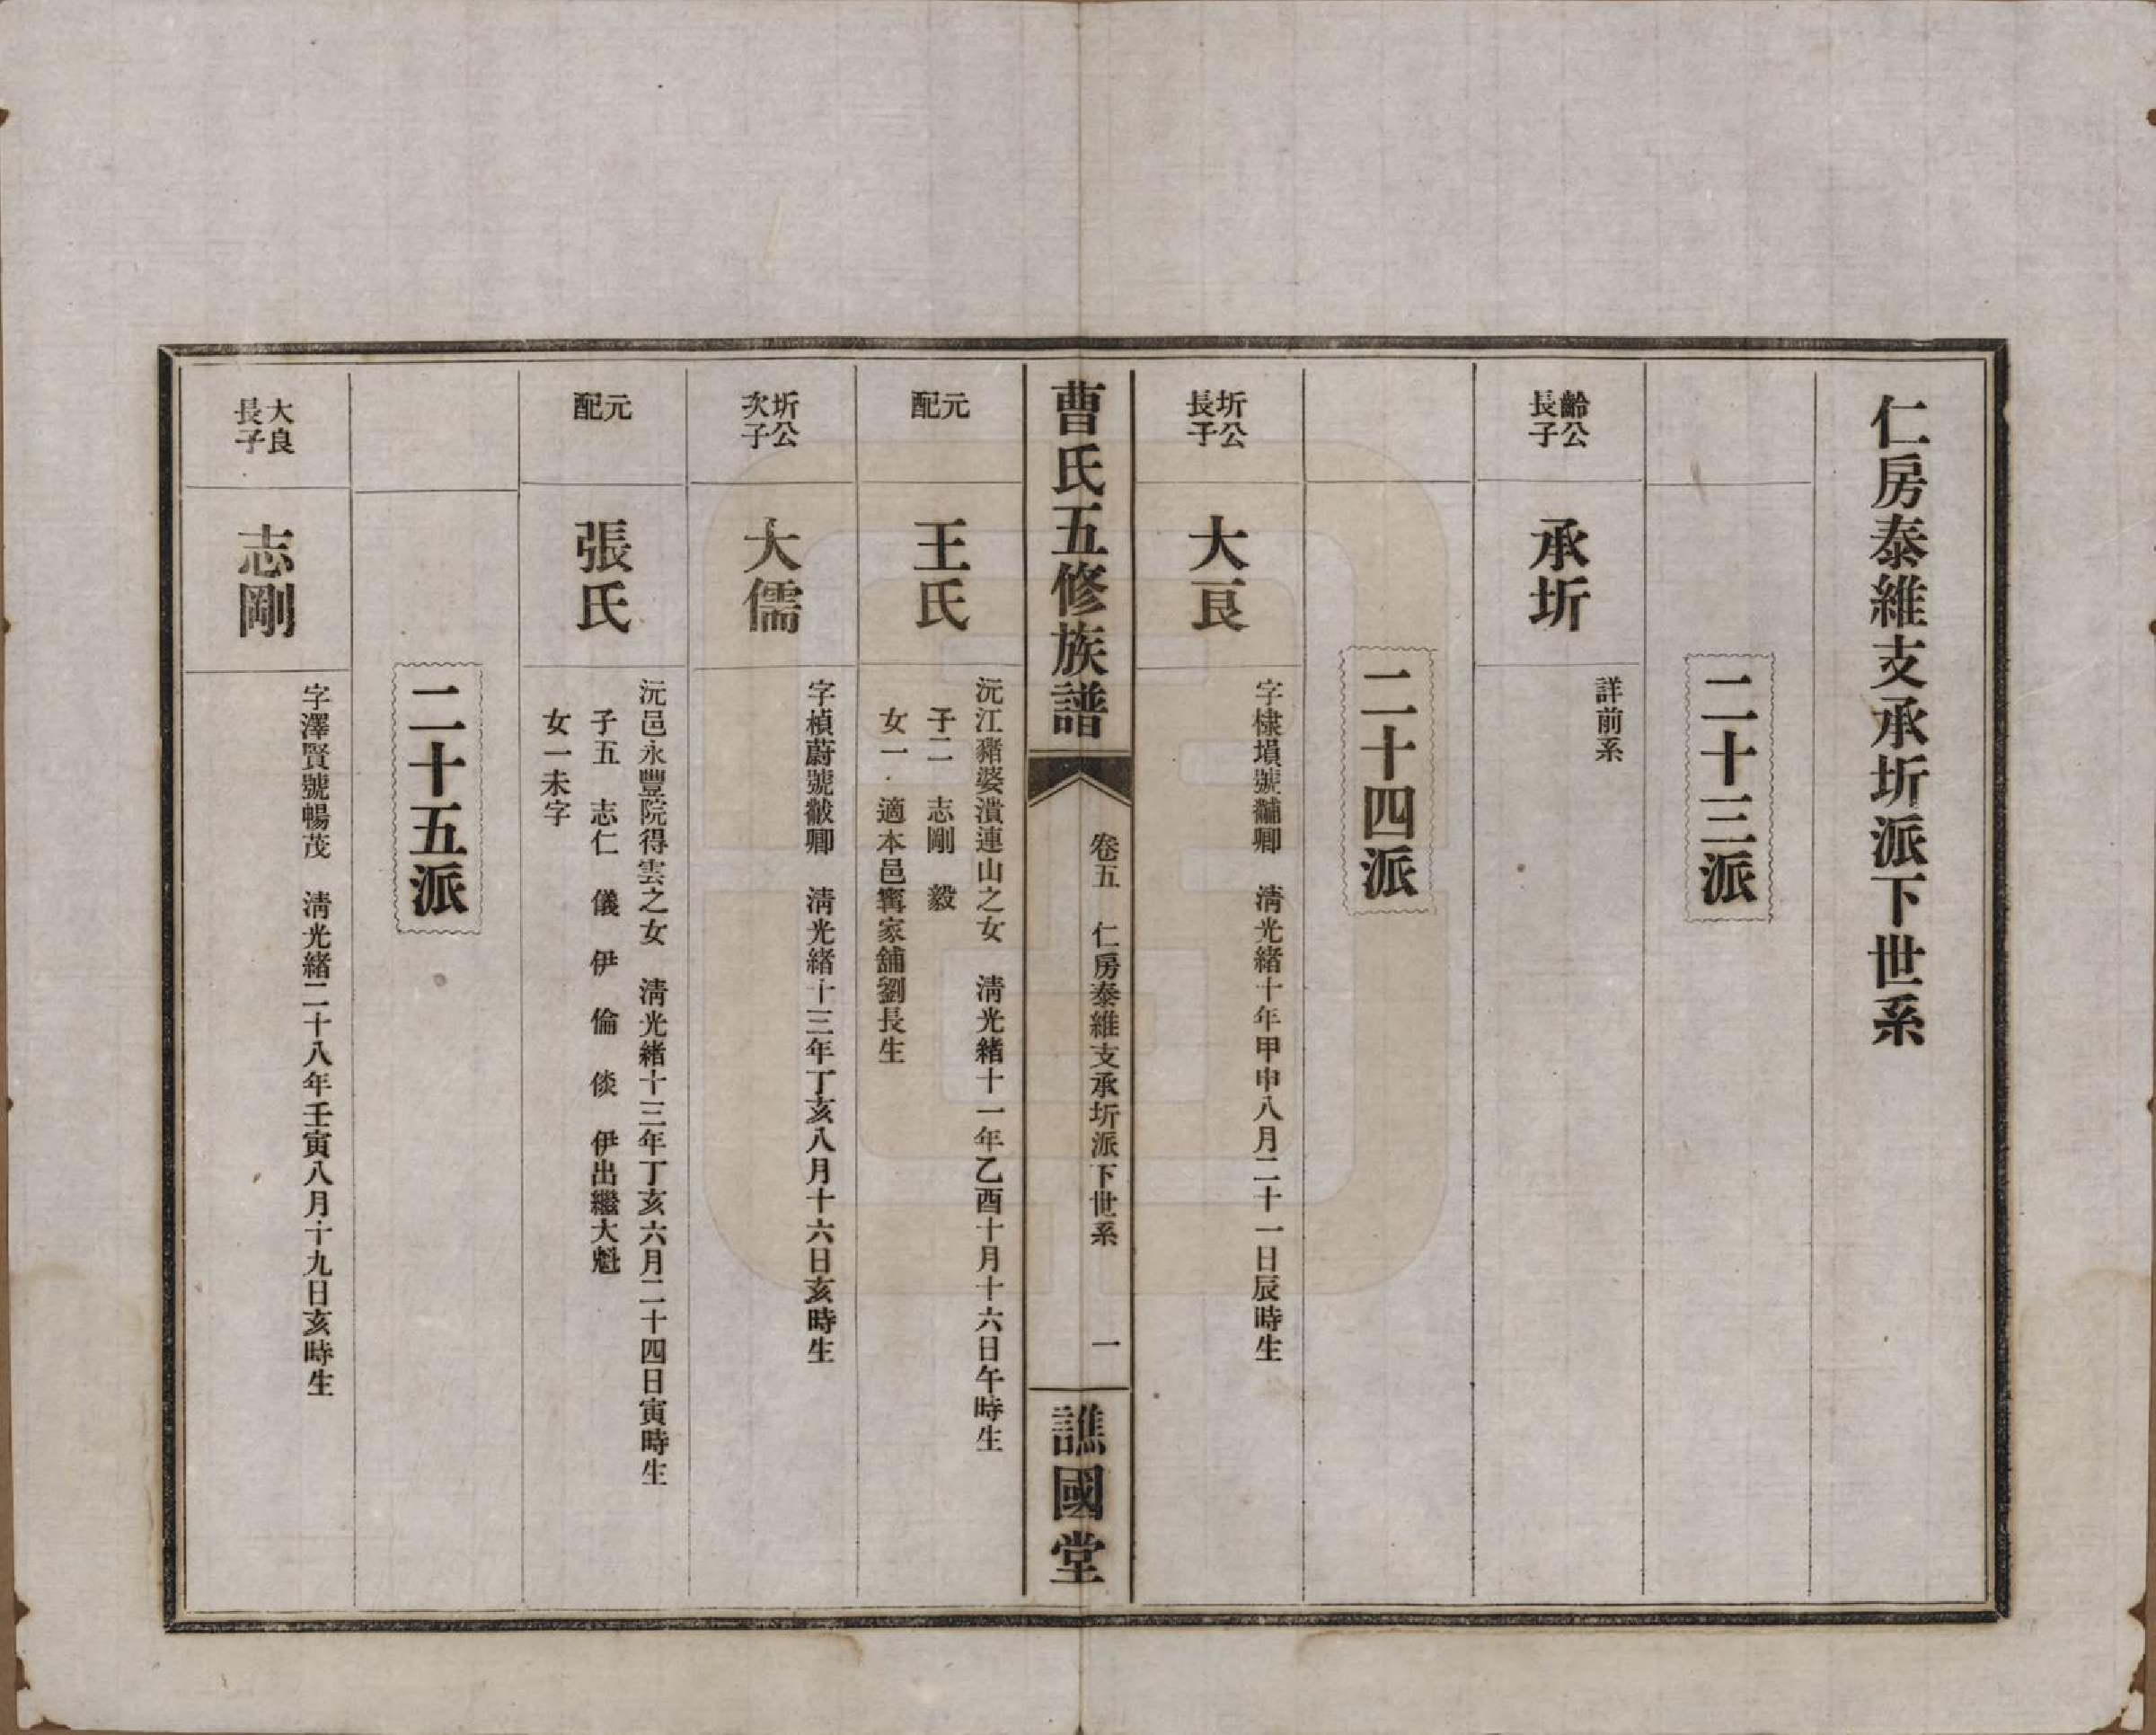 仁房泰維支承圻派下世系
二十三派
齡公
長子
承圻
詳前系
二十四派
圻公
長子
大良
字棣塤號黼卿　清光緒十年甲申八月二十一日辰時生
曹氏五修族譜
卷五　仁房泰維支承圻派下世系　一
譙國堂
元配
王氏
沅江豬婆潰連山之女　清光緒十一年乙酉十月十六日午時生
子二　志剛　毅
女一　適本邑寗家舖劉長生
圻公
次子
大儒
字楨蔚號黻卿　清光緒十三年丁亥八月十六日亥時生
元配
張氏
沅邑永豐院得雲之女　清光緒十三年丁亥六月二十四日寅時生
子五　志仁　儀　伊　倫　倓　伊出繼大魁
女一未字
二十五派
大良
長子
志剛
字澤賢號暢茂　清光緒二十八年壬寅八月十九日亥時生